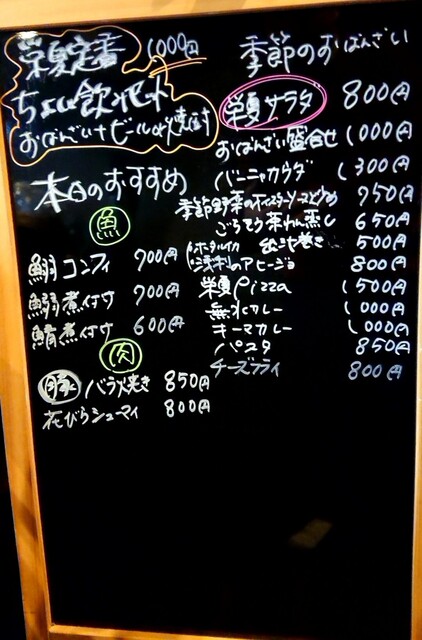 栄夏定番 1000円
ちょい飲みセット
おばんざい+ビールor焼酎付
本日のおすすめ
魚
鰯コンフィ 700円
鰯煮付け 700円
鯖煮付け 600円
肉
豚バラ焼き 850円
花びらシューマイ 800円
季節のおばんざい
サラダ 800円
おばんざい盛合せ 1000円
バーニャカウダ 1300円
季節野菜のオイスターソース炒め 750円
ごちそう茶わん蒸し 650円
出汁巻き 500円
ホタルイカ
浅利のアヒージョ 800円
Pizza 1500円
無水カレー 1000円
キーマカレー 1000円
パスタ 850円
チーズフライ 800円